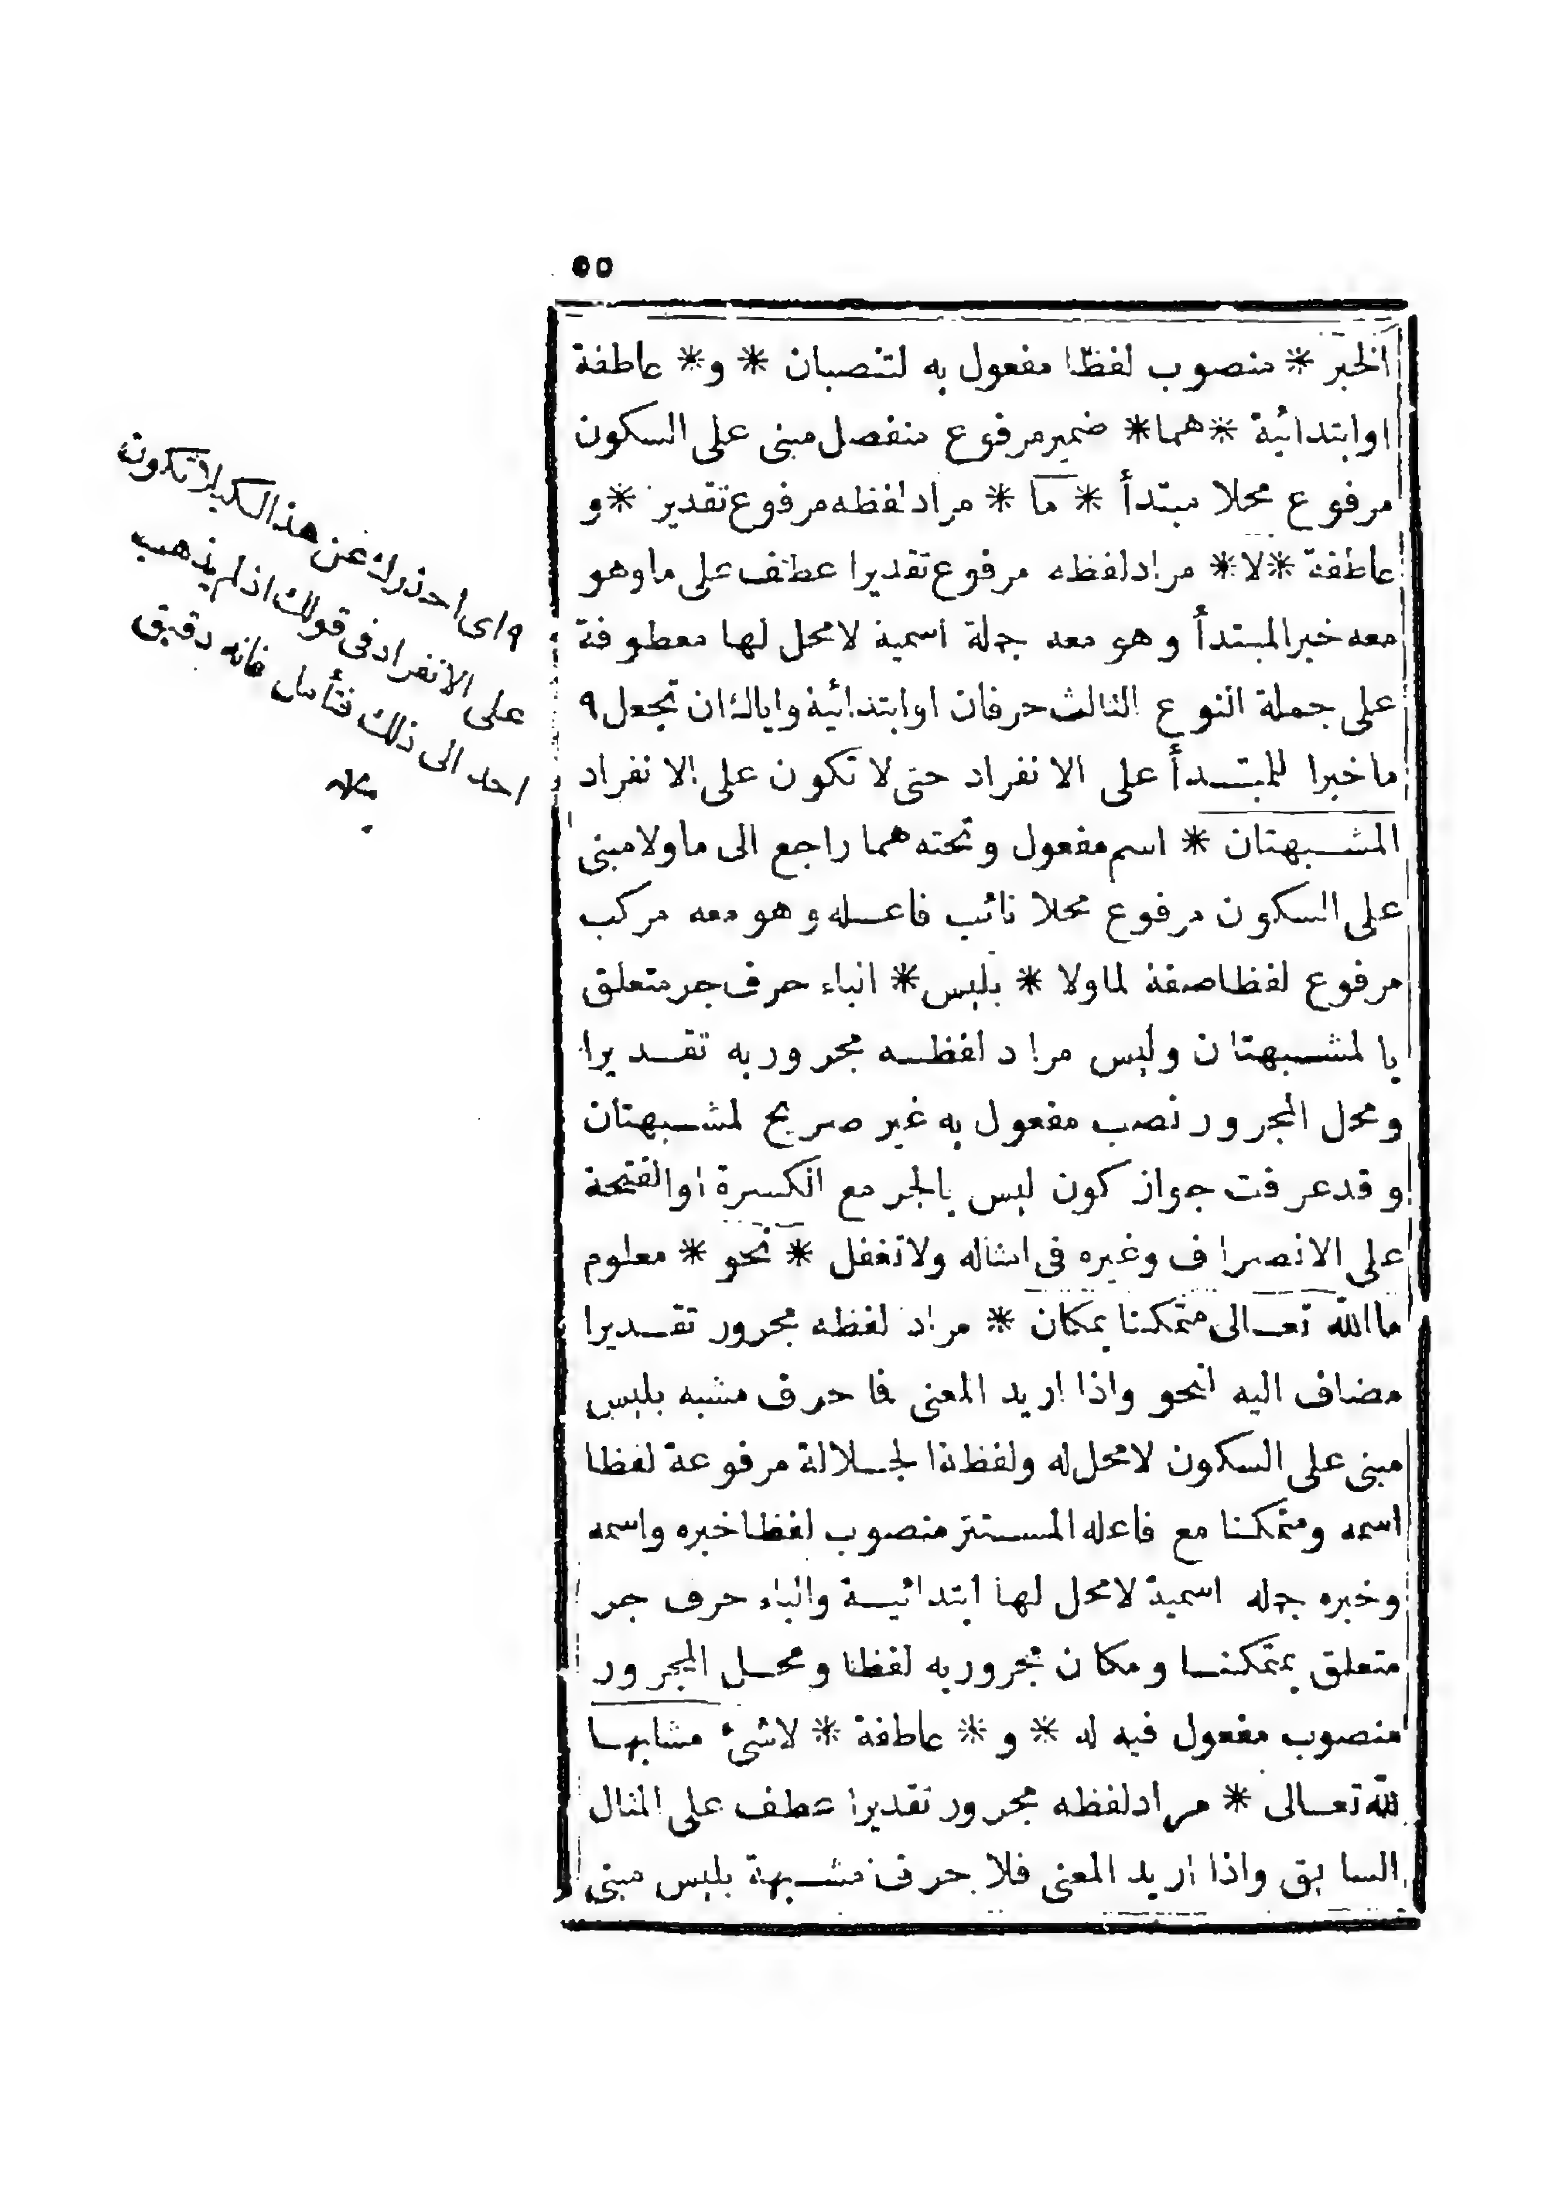 ٥٥
الخبر * منصوب لفظا مفعول به لتنصبان * و * عاطفة
او ابتدائية * هما * ضمير مرفوع منفصل مبنى على السكون
مرفوع محلا مبتدأ * ما * مراد لفظه مرفوع تقدير * و
عاطفة * لا * مراد لفظه مرفوع تقديرا عطف على ما وهو
معه خبر المبتدأ وهو معه جملة اسمية لا محل لها معطوفة
على جملة النوع الثالث حرفان او ابتدائية واياك ان تجعل ٩
ما خبرا للمبتدأ على الانفراد حتى لا تكون على الانفراد
المشبهتان * اسم مفعول وتحته هما راجع الى ما ولا مبنى
على السكون مرفوع محلا نائب فاعله وهو معه مركب
مرفوع لفظا صفة لما ولا * بليس * الباء حرف جر متعلق
بالمشبهتان وليس مراد لفظه مجرور به تقديرا
ومحل المجرور نصب مفعول به غير صريح لمشبهتان
وقد عرفت جواز كون ليس بالجر مع الكسرة او الفتحة
على الانصراف وغيره فى امثاله ولا تغفل * نحو * معلوم
ما الله تعالى متمكنا بمكان * مراد لفظه مجرور تقديرا
مضاف اليه لنحو واذا اريد المعنى فما حرف مشبه بليس
مبنى على السكون لا محل له ولفظة الجلالة مرفوعة لفظا
اسمه ومتمكنا مع فاعله المستتر منصوب لفظا خبره واسمه
وخبره جمله اسمية لا محل لها ابتدائية والباء حرف جر
متعلق بمتمكنا ومكان مجرور به لفظا ومحل المجرور
منصوب مفعول فيه له * و * عاطفة * لا شئ مشابها
لله تعالى * مراد لفظه مجرور تقديرا عطف على المثال
السابق واذا اريد المعنى فلا حرف مشبهة بليس مبنى
٩ اى احذرك عن هذا لكيلا تكون
على الانفراد فى قولك اذ لم يذهب
احد الى ذلك فتأمل فانه دقيق